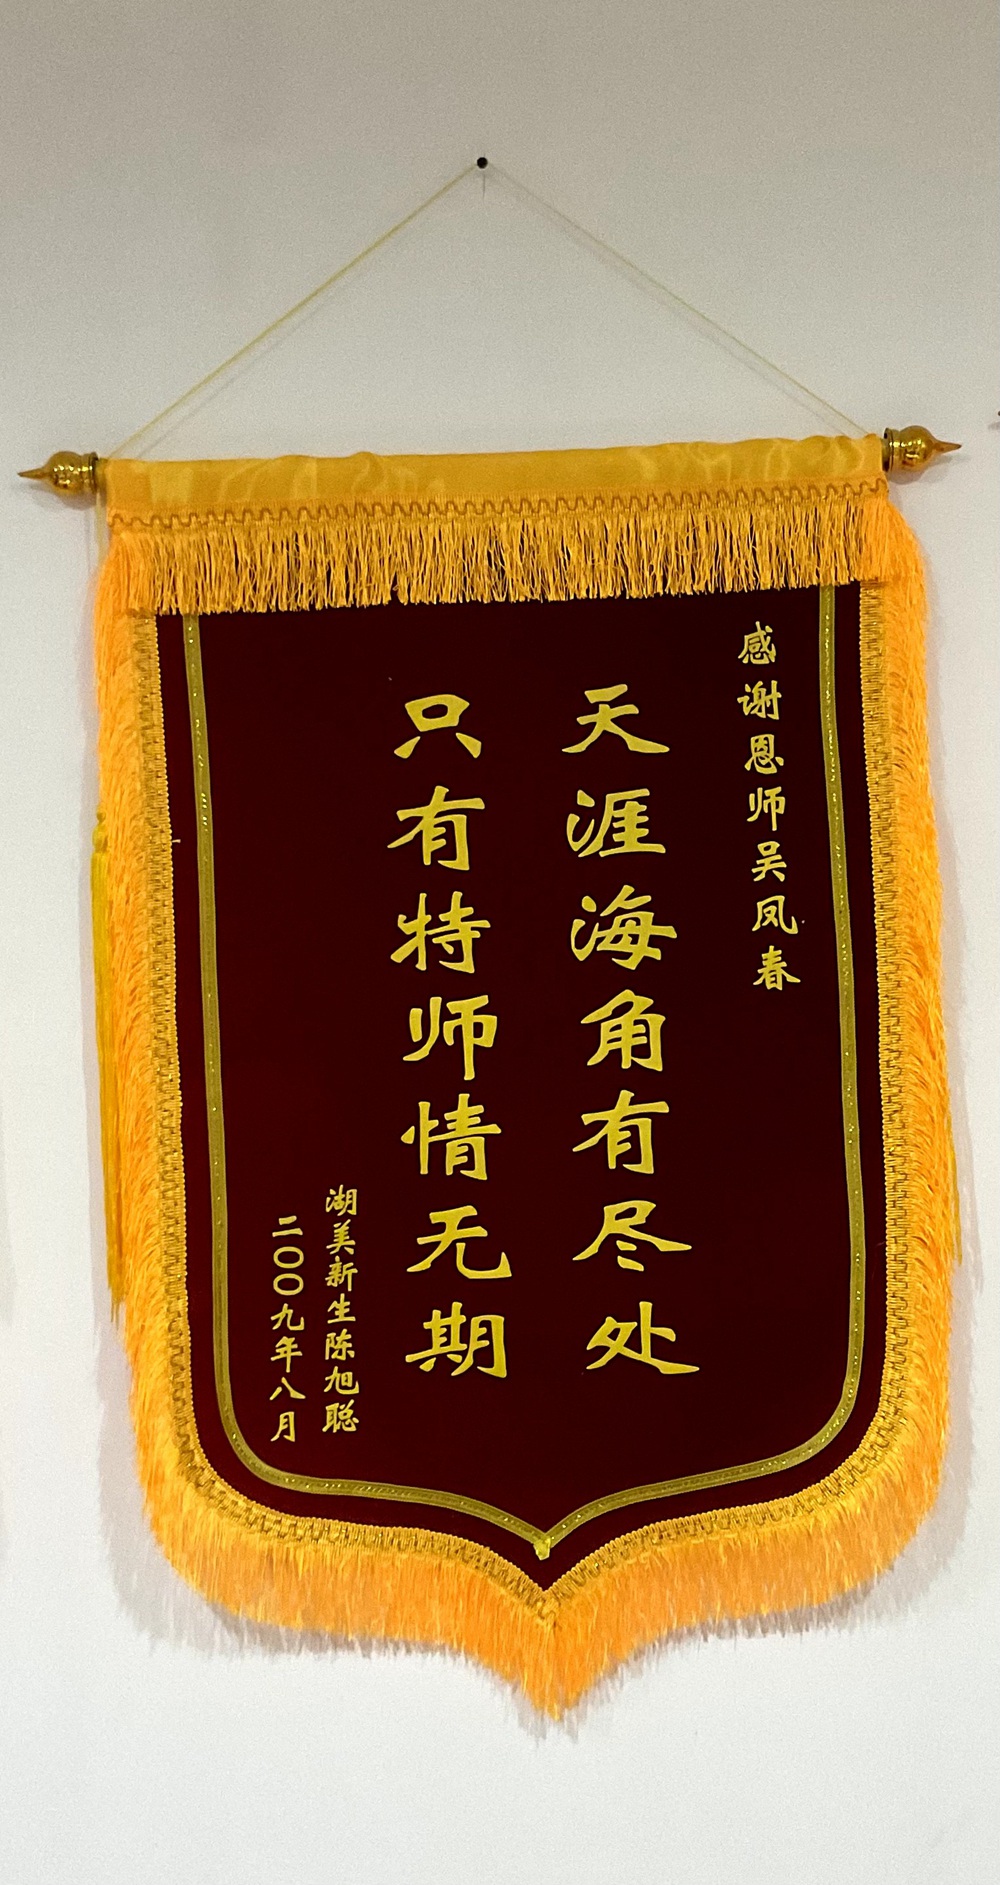 感谢恩师吴凤春
天涯海角有尽处
只有特师情无期
湖美新生陈旭聪
二〇〇九年八月